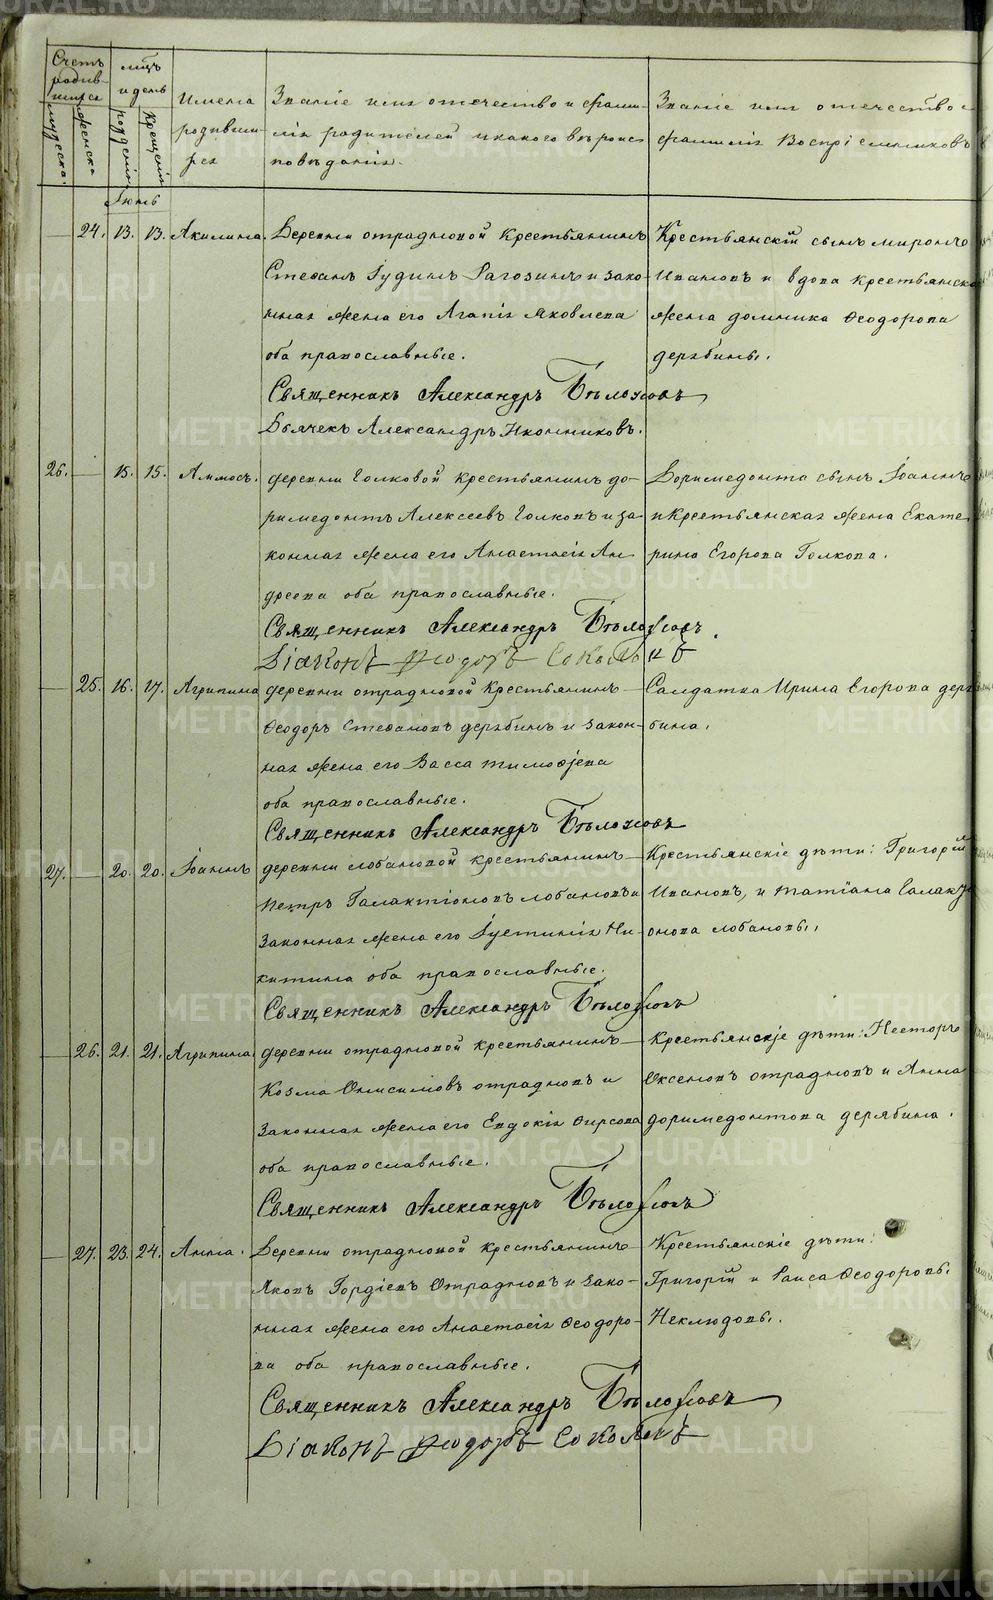 METRIKI.GASO-URAL.RU
Счетъ родив-шихся
мужеска.
женска
мѣсяцъ и день
рожденія
крещенія
Имена родивши-хся
Званіе имя отечество и фами-
лія родителей и какого вѣроис-
повѣданія.
Званіе имя отечество и
фамилія Воспріемниковъ
Іюнь
24. 13. 13. Акилина.
Деревни отрадновой Крестьянинъ
Стефанъ Іудинъ Рагозинъ и зако-
нная жена его Агапія Яковлева
оба православные.
Крестьянскій сынъ миронъ
Ивановъ и вдова крестьянска
жена домника Ѳеодорова
дерябины.
Священникъ Александръ Бѣлоусовъ
Дьячекъ Александръ Иконниковъ.
26. 15. 15. Аммосъ.
деревни Голковой Крестьянинъ до-
римедонтъ Алексеевъ Голковъ и за-
конная жена его Анастасія Ан-
дреева оба православные.
Доримедонта сынъ Іоаннъ
и Крестьянская жена Екате-
рина Егорова Голкова.
Священникъ Александръ Бѣлоусовъ.
Діаконъ Феодоръ Соколовъ
25. 16. 17. Агрипина
деревни отрадновой Крестьянинъ
Ѳеодоръ Стефановъ дерябинъ и закон-
ная жена его Васса тимофеева
оба православные.
Салдатка Ирина Егорова деря-
бина.
Священникъ Александръ Бѣлоусовъ
27. 20. 20. Іоаннъ
деревни лобановой крестьянинъ
Петръ Галактіоновъ лобановъ и
законная жена его Іустинія Ни-
китина оба православные.
Крестьянскіе дѣти: Григорій
Ивановъ, и татіана Галакті-
онова лобановы.
Священникъ Александръ Бѣлоусовъ
26. 21. 21. Агрипина
деревни отрадновой крестьянинъ
Козма Онисимовъ отрадновъ и
законная жена его Евдокія Фирсова
оба православные.
Крестьянскіе дѣти: Несторъ
Оксеновъ отрадновъ и Анна
доримедонтова дерябина.
Священникъ Александръ Бѣлоусовъ
27. 23. 24. Анна.
Деревни отрадновой крестьянинъ
Яковъ Гордіевъ Отрадновъ и зако-
нная жена его Анастасія Ѳеодоро-
ва оба православные.
Крестьянскіе дѣти:
Григорій и Раиса Ѳеодоровы
Неклюдовы.
Священникъ Александръ Бѣлоусовъ
Діаконъ Феодоръ Соколовъ